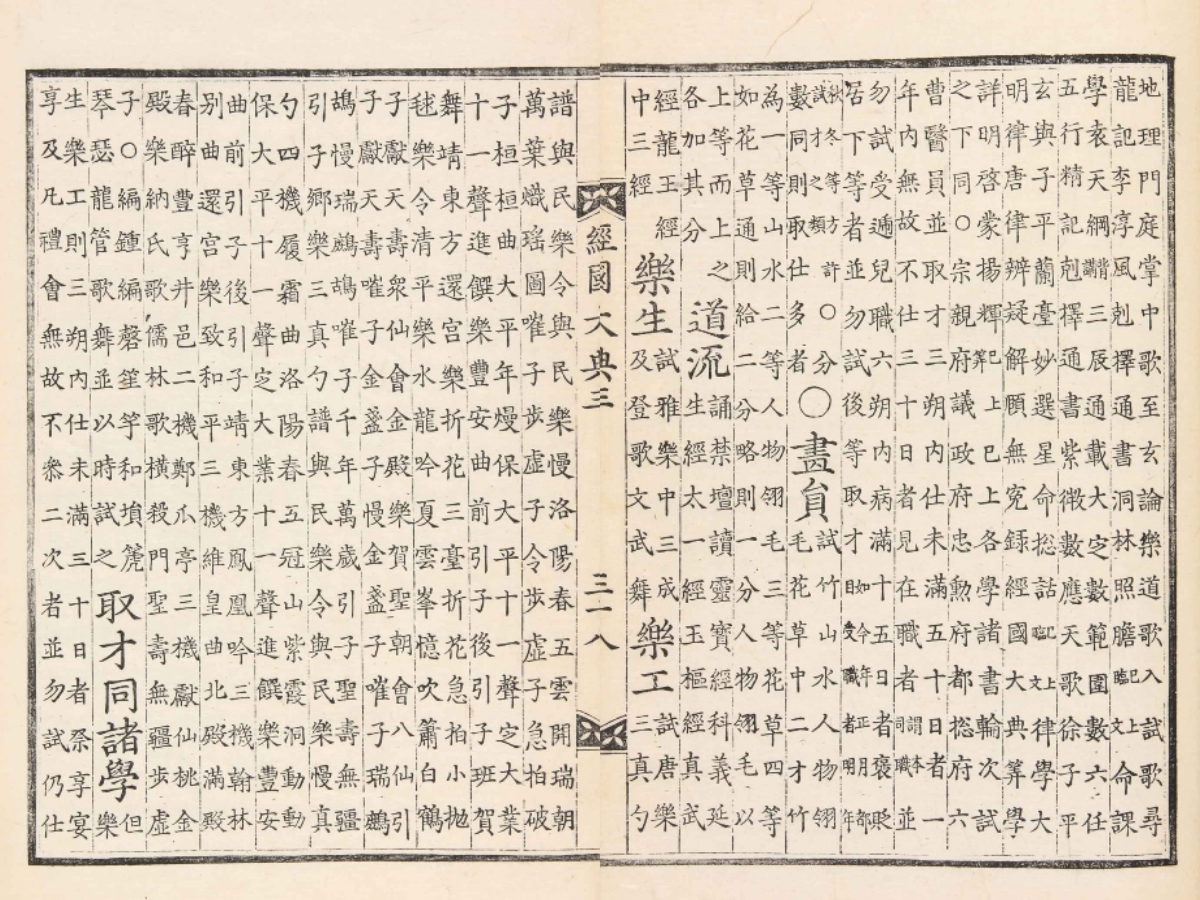 地理門庭掌中歌至玄論樂道歌入試歌尋
龍記李淳風剋擇通書洞林照膽臨文 已上命課
學袁天綱背誦三辰通載大定數範圍數六任
五行精記剋擇通書紫微數應天歌徐子平
玄輿子平蘭臺妙選星命捴話臨文 已上律學大
明律唐律辨疑解頤無寃錄經國大典筭學
詳明啓蒙揚輝筭已上已上各學諸書輪次試
之下同○宗親府議政府忠勳府都捴府六
曹醫員並取才三朔內仕未滿五十日者一
年內無故不仕三十日者見在職者同職 謂本並
勿試受遞兒職六朔內病滿十五日者褒貶
居下等者並勿試後等取才
畫員
試竹山水人物翎
毛花草中二才竹
為一等山水二等人物翎毛三等花草四等
如花草通則給二分略則一分人物翎毛以
上等而上之
各加其分
道流
誦禁壇讀靈寶經科義延
生經太一經玉樞經真武
經龍王經
中三經
樂生
試雅樂中三成
及登歌文武舞
樂工
試唐樂
三真勺
譜與民樂令與民樂慢洛陽春五雲開瑞朝
萬葉熾瑤圖嗺子步虛子令步虛子急拍破
子桓桓曲大平年熳保大平十一聲定大業
十一聲進饌樂豐安曲前引子後引子班賀
舞靖東方還宮樂折花三臺折花急拍小抛
毬樂令清平樂水龍吟夏雲峯憶吹簫白鶴
子獻天壽衆仙會金殿樂賀聖朝會八仙引
子獻天壽嗺子金盞子慢金盞子嗺子瑞鷓
鴣慢瑞鷓鴣嗺子千年萬歲引子聖壽無疆
引子鄉樂三真勺譜與民樂令與民樂慢真
勺四機履霜曲洛陽春五冠山紫霞洞動動
保大平十一聲定大業十一聲進饌樂豐安
曲前引子後引子靖東方鳳凰吟三機翰林
別曲還宮樂致和平三機維皇曲北殿滿殿
春醉豐亨井邑二機鄭瓜亭三機獻仙桃金
殿樂納氏歌儒林歌橫殺門聖壽無疆步虛
子○編鍾編磬笙竽和塤篪
琴瑟龍管歌舞並以時試之
取才同諸學
但
樂
生樂工則三朔內仕未滿三十日者祭享宴
享及凡禮會無故不參二次者並勿試仍仕
經國大典三
三十八